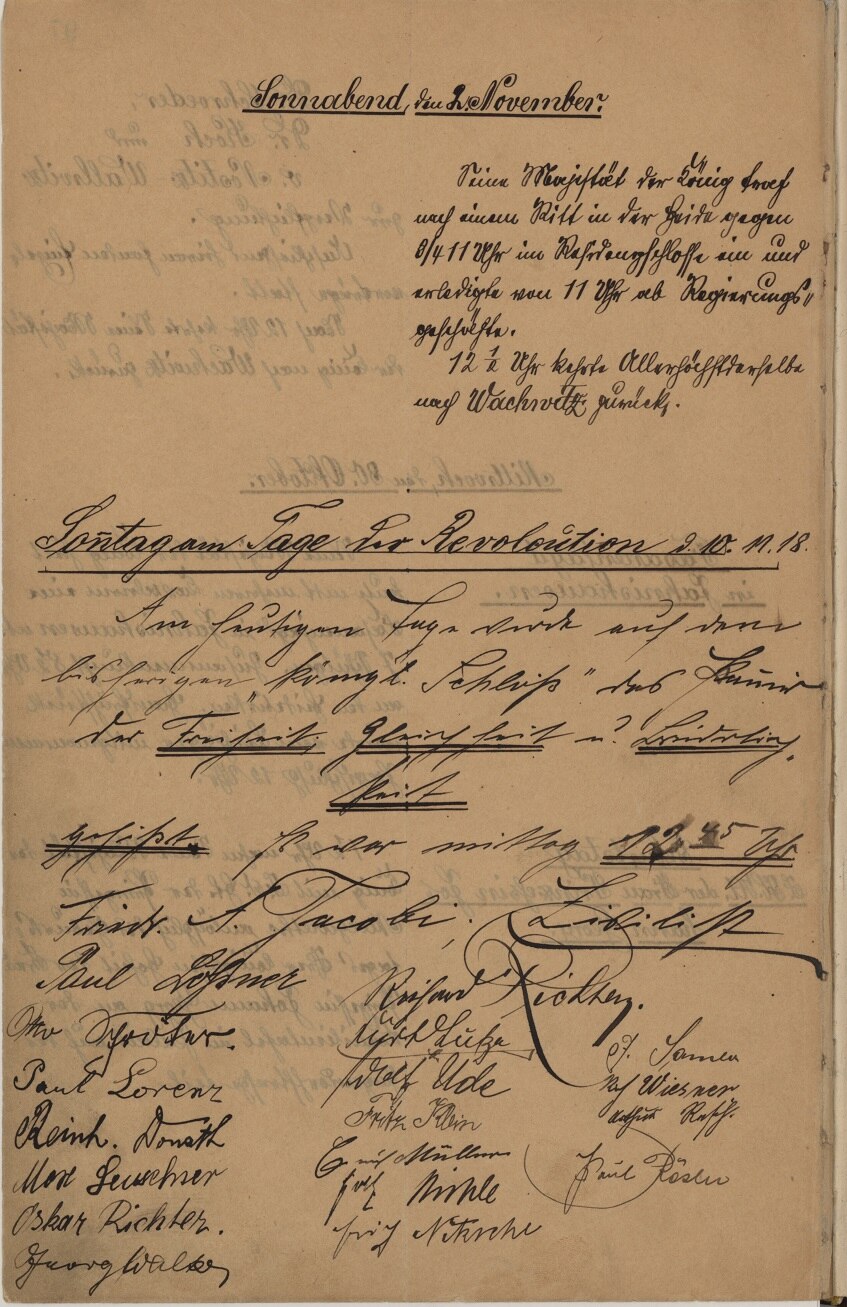 Sonnabend, den 2. November.
Seine Majestät der König traf
nach einem Ritt in der Heide gegen
3/4 11 Uhr im Residenzschlosse ein und
erledigte von 11 Uhr ab Regierungs-
geschäfte.
12 1/2 Uhr kehrte Allerhöchstderselbe
nach Wachwitz zurück.
Sonntag am Tage der Revoloution d. 10. 11. 18.
Am heutigen Tage wurde auf dem
bisherigen „königl. Schloß" das Panier
der Freiheit, Gleichheit u. Brüderlich-
keit
gehißt. Es war mittag 12 45 Uhr
Friedr. A. Jacobi, Zivilist
Paul Lößner
Richard Richter.
Otto Schröter.
Kurt
Paul Lorenz
Adolf Ude
Wiesner
Reinh. Donath
Fritz Klein
Arthur
Max Leuschner
Müller
Paul Rösler
Oskar Richter.
Georg Walter
Nitzsche